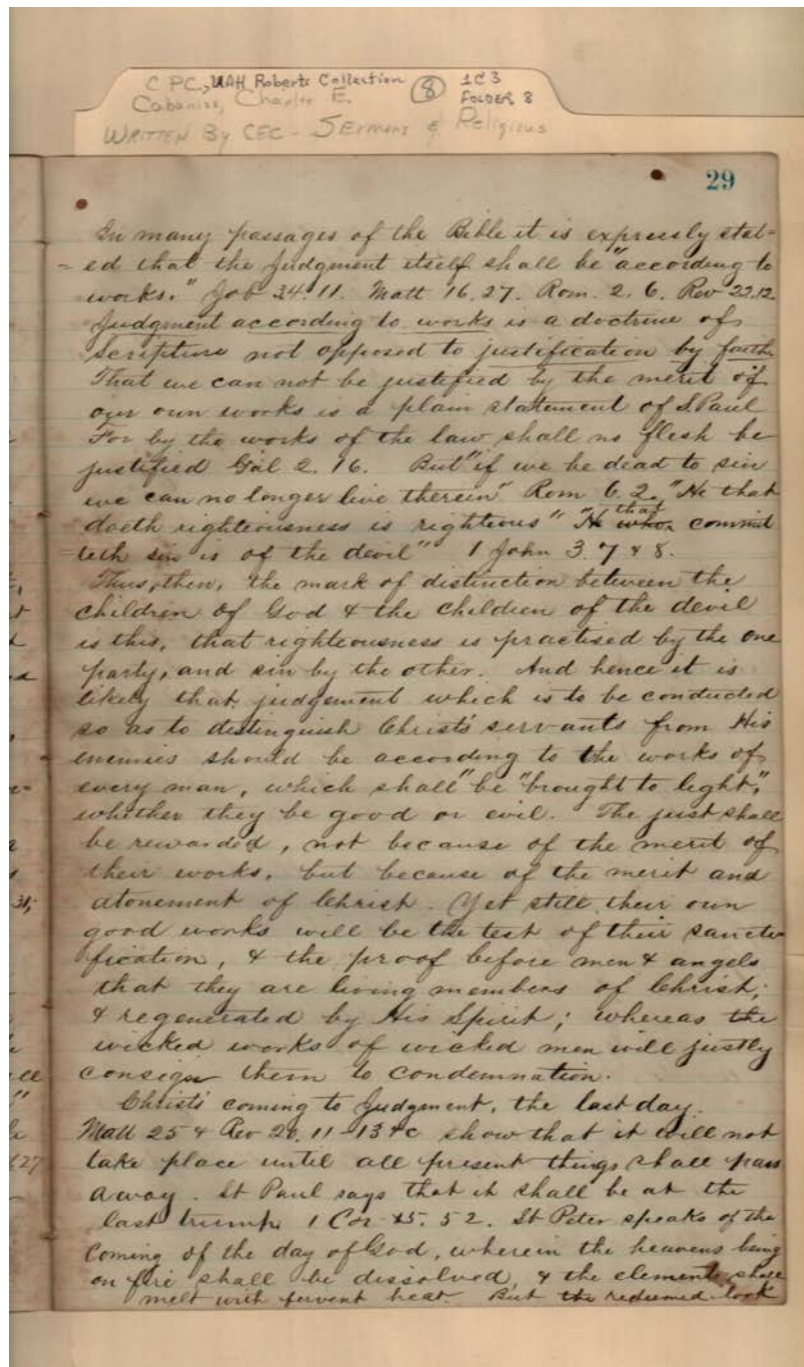 C PC, UAH Roberts Collection (8) 1C3
Cabaniss, Charles E. FOLDER 8
WRITTEN By CEC - SErmons & Religious
29
In many passages of the Bible it is expressly stat-
= ed that the Judgment itself shall be "according to
works." Job 34.11. Matt 16.27. Rom. 2.6. Rev 22.12.
Judgment according to works is a doctrine of
Scripture not opposed to justification by faith
That we can not be justified by the merit of
our own works is a plain statement of S Paul
For by the works of the law shall no flesh be
justified Gal 2.16. But "if we be dead to sin
we can no longer live therein" Rom 6.2. "He that
doeth righteousness is righteous" "He who that commit
=teth sin is of the devil" 1 John 3.7 & 8.
Thus, then, the mark of distinction between the
children of God & the children of the devil
is this, that righteousness is practised by the one
party, and sin by the other. And hence it is
likely that judgement which is to be conducted
so as to distinguish Christ's servants from His
enemies should be according to the works of
every man, which shall "be "brought to light",
whether they be good or evil. The just shall
be rewarded, not because of the merit of
their works, but because of the merit and
atonement of Christ. Yet still their own
good works will be the test of their sancti
fication, & the proof before men & angels
that they are living members of Christ,
& regenerated by His Spirit; whereas the
wicked works of wicked men will justly
consign them to condemnation.
Christ's coming to Judgment, the last day.
Matt 25 & Rev 20.11-13 &c show that it will not
take place until all present things shall pass
away. St Paul says that it shall be at the
last trump. 1 Cor 15.52. St Peter speaks of the
coming of the day of God, wherein the heavens being
on fire shall be dissolved, & the elements shall
melt with fervent heat. But the redeemed look